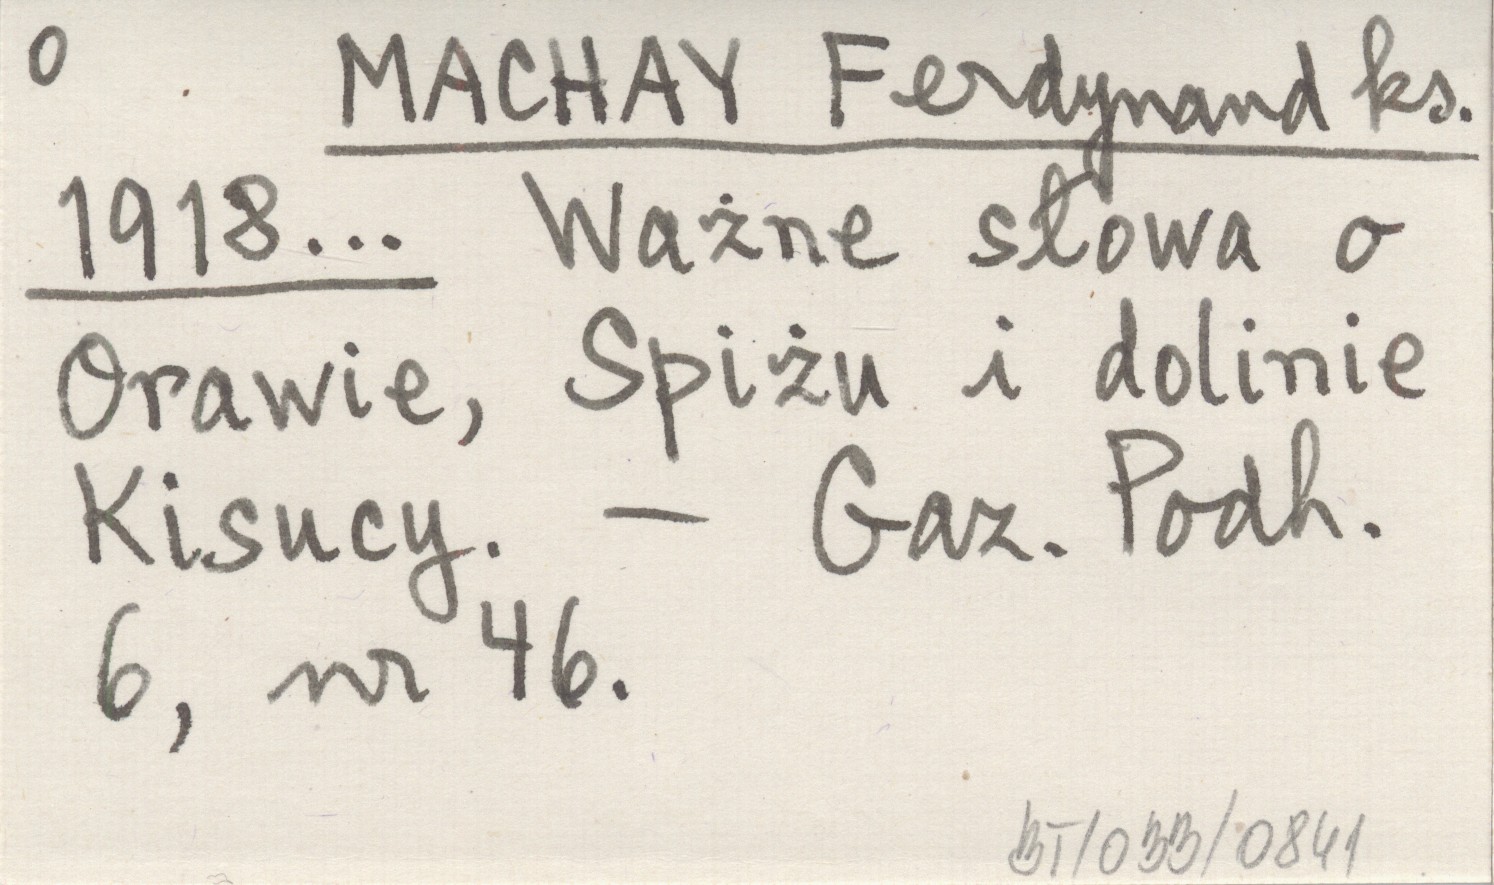 o MACHAY Ferdynand ks.
1918... Ważne słowa o
Orawie, Spiżu i dolinie
Kisucy. — Gaz. Podh.
6, nr 46.
BT/OBB/0841